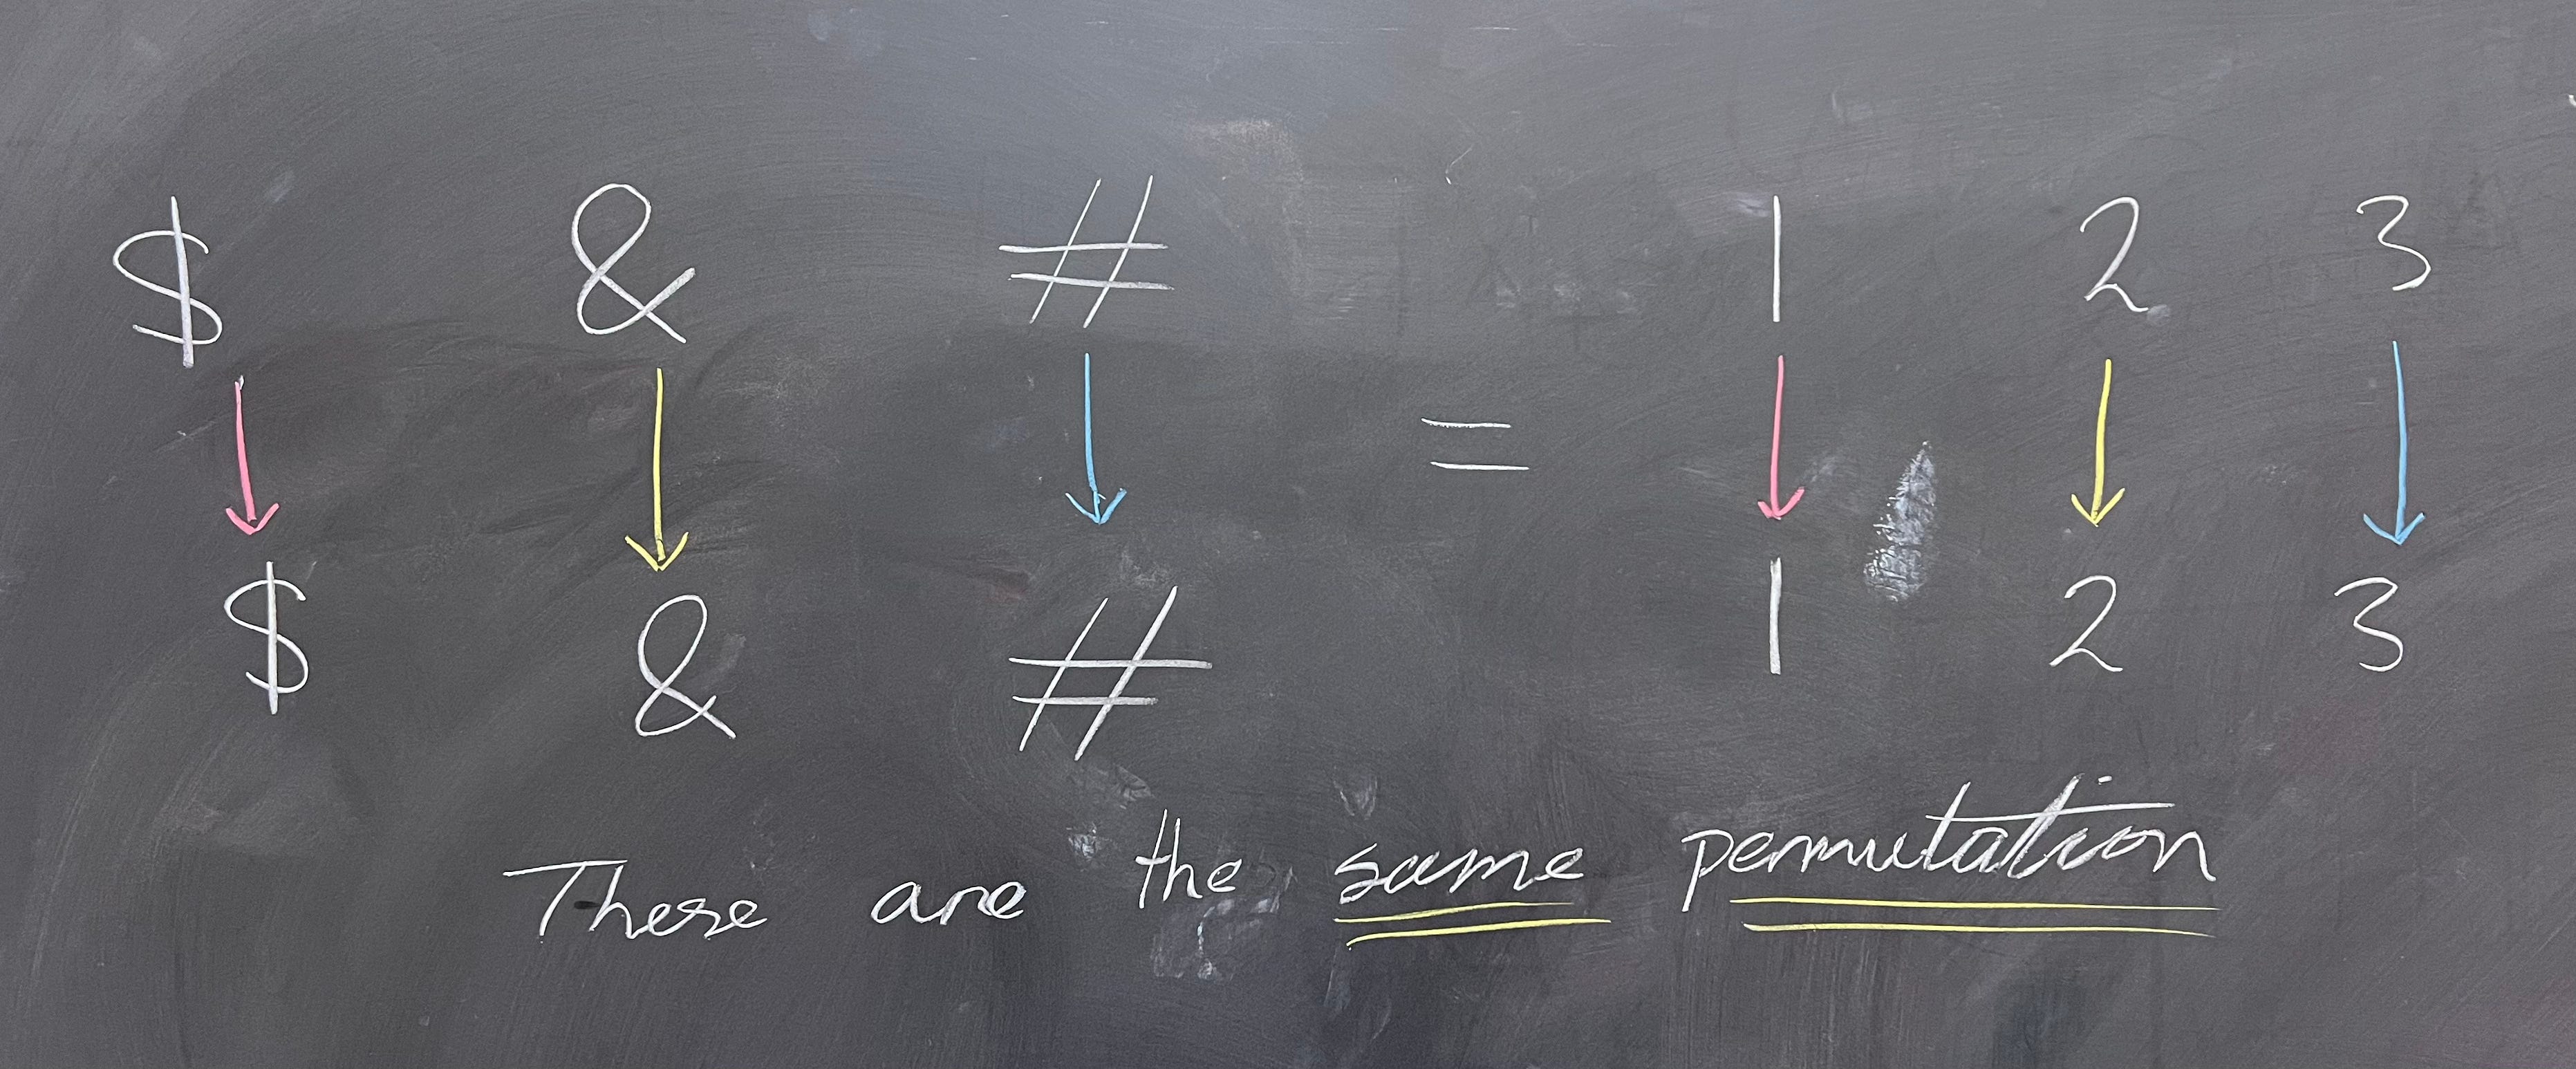 $ & # 1 2 3
=
$ & # 1 2 3
These are the same permutation